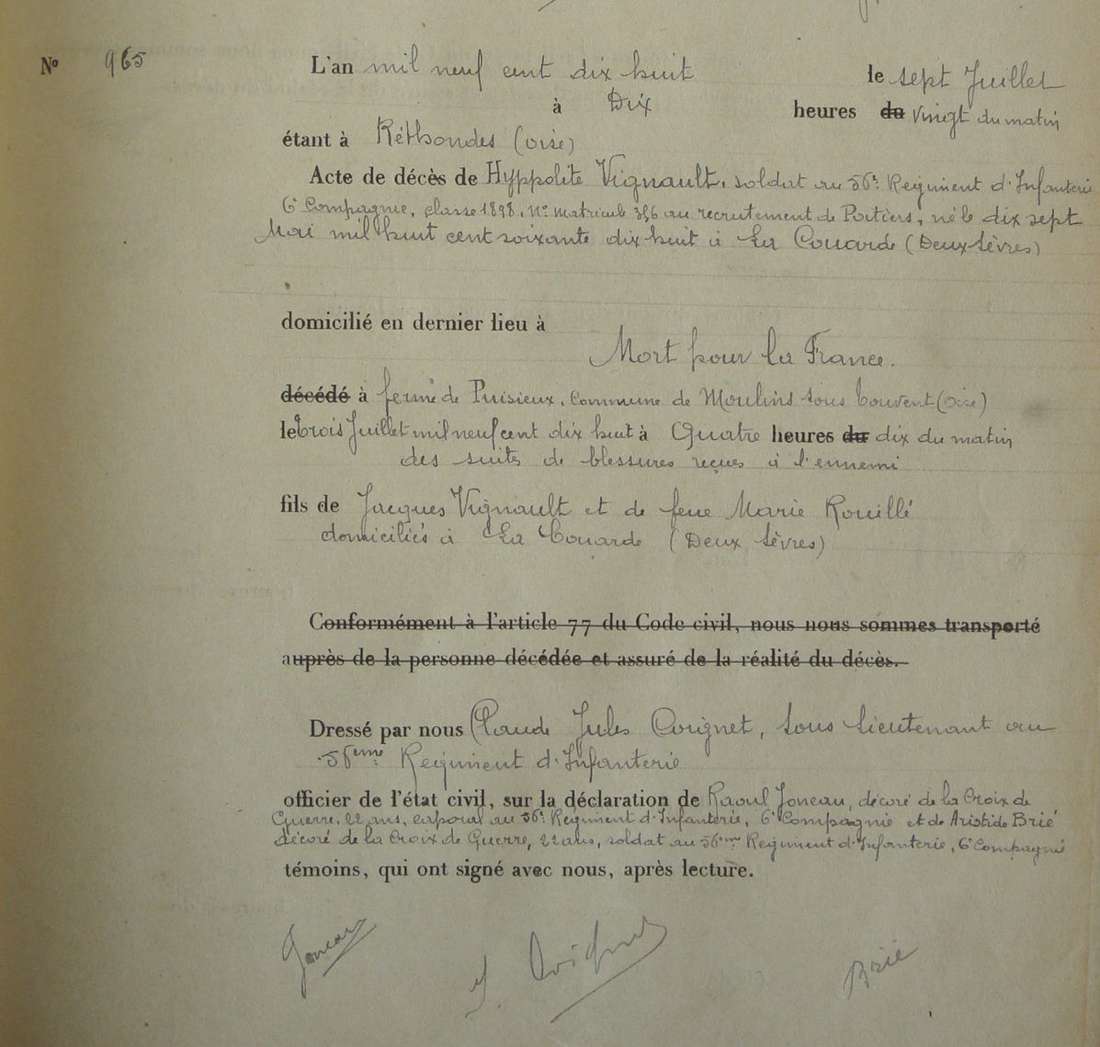 N° 965
L'an mil neuf cent dix huit le sept Juillet
à Dix heures du vingt du matin
étant à Réthondes (Oise)
Acte de décès de Hyppolite Vignault, soldat au 56e Regiment d'Infanterie
6e Compagnie, classe 1898, No Matricule 356 au recrutement de Poitiers, né le dix sept
Mai mil huit cent soixante dix huit à La Couarde (Deux Sèvres)
domicilié en dernier lieu à
Mort pour la France.
décédé à ferme de Puisieux, Commune de Moulins sous Touvent (Oise)
le trois Juillet mil neuf cent dix huit à Quatre heures du dix du matin
des suites de blessures reçues à l'ennemi
fils de Jacques Vignault et de feue Marie Rouillé
domiciliés à La Couarde (Deux Sèvres)
Conformément à l'article 77 du Code civil, nous nous sommes transporté
auprès de la personne décédée et assuré de la réalité du décès.
Dressé par nous Claude Jules Coignet, sous lieutenant au
56eme Regiment d'Infanterie
officier de l'état civil, sur la déclaration de Raoul Joneau, décoré de la Croix de
Guerre, 22 ans, caporal au 56e Regiment d'Infanterie, 6e Compagnie et de Aristide Brié
décoré de la Croix de Guerre, 22 ans, soldat au 56eme Regiment d'Infanterie, 6e Compagnie
témoins, qui ont signé avec nous, après lecture.
Joneau Coignet Brié